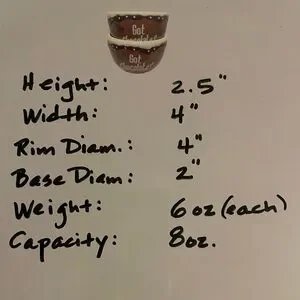 Got
Chocolate?
Got
Chocolate?
Height: 2.5"
Width: 4"
Rim Diam.: 4"
Base Diam: 2"
Weight: 6 oz (each)
Capacity: 8oz.